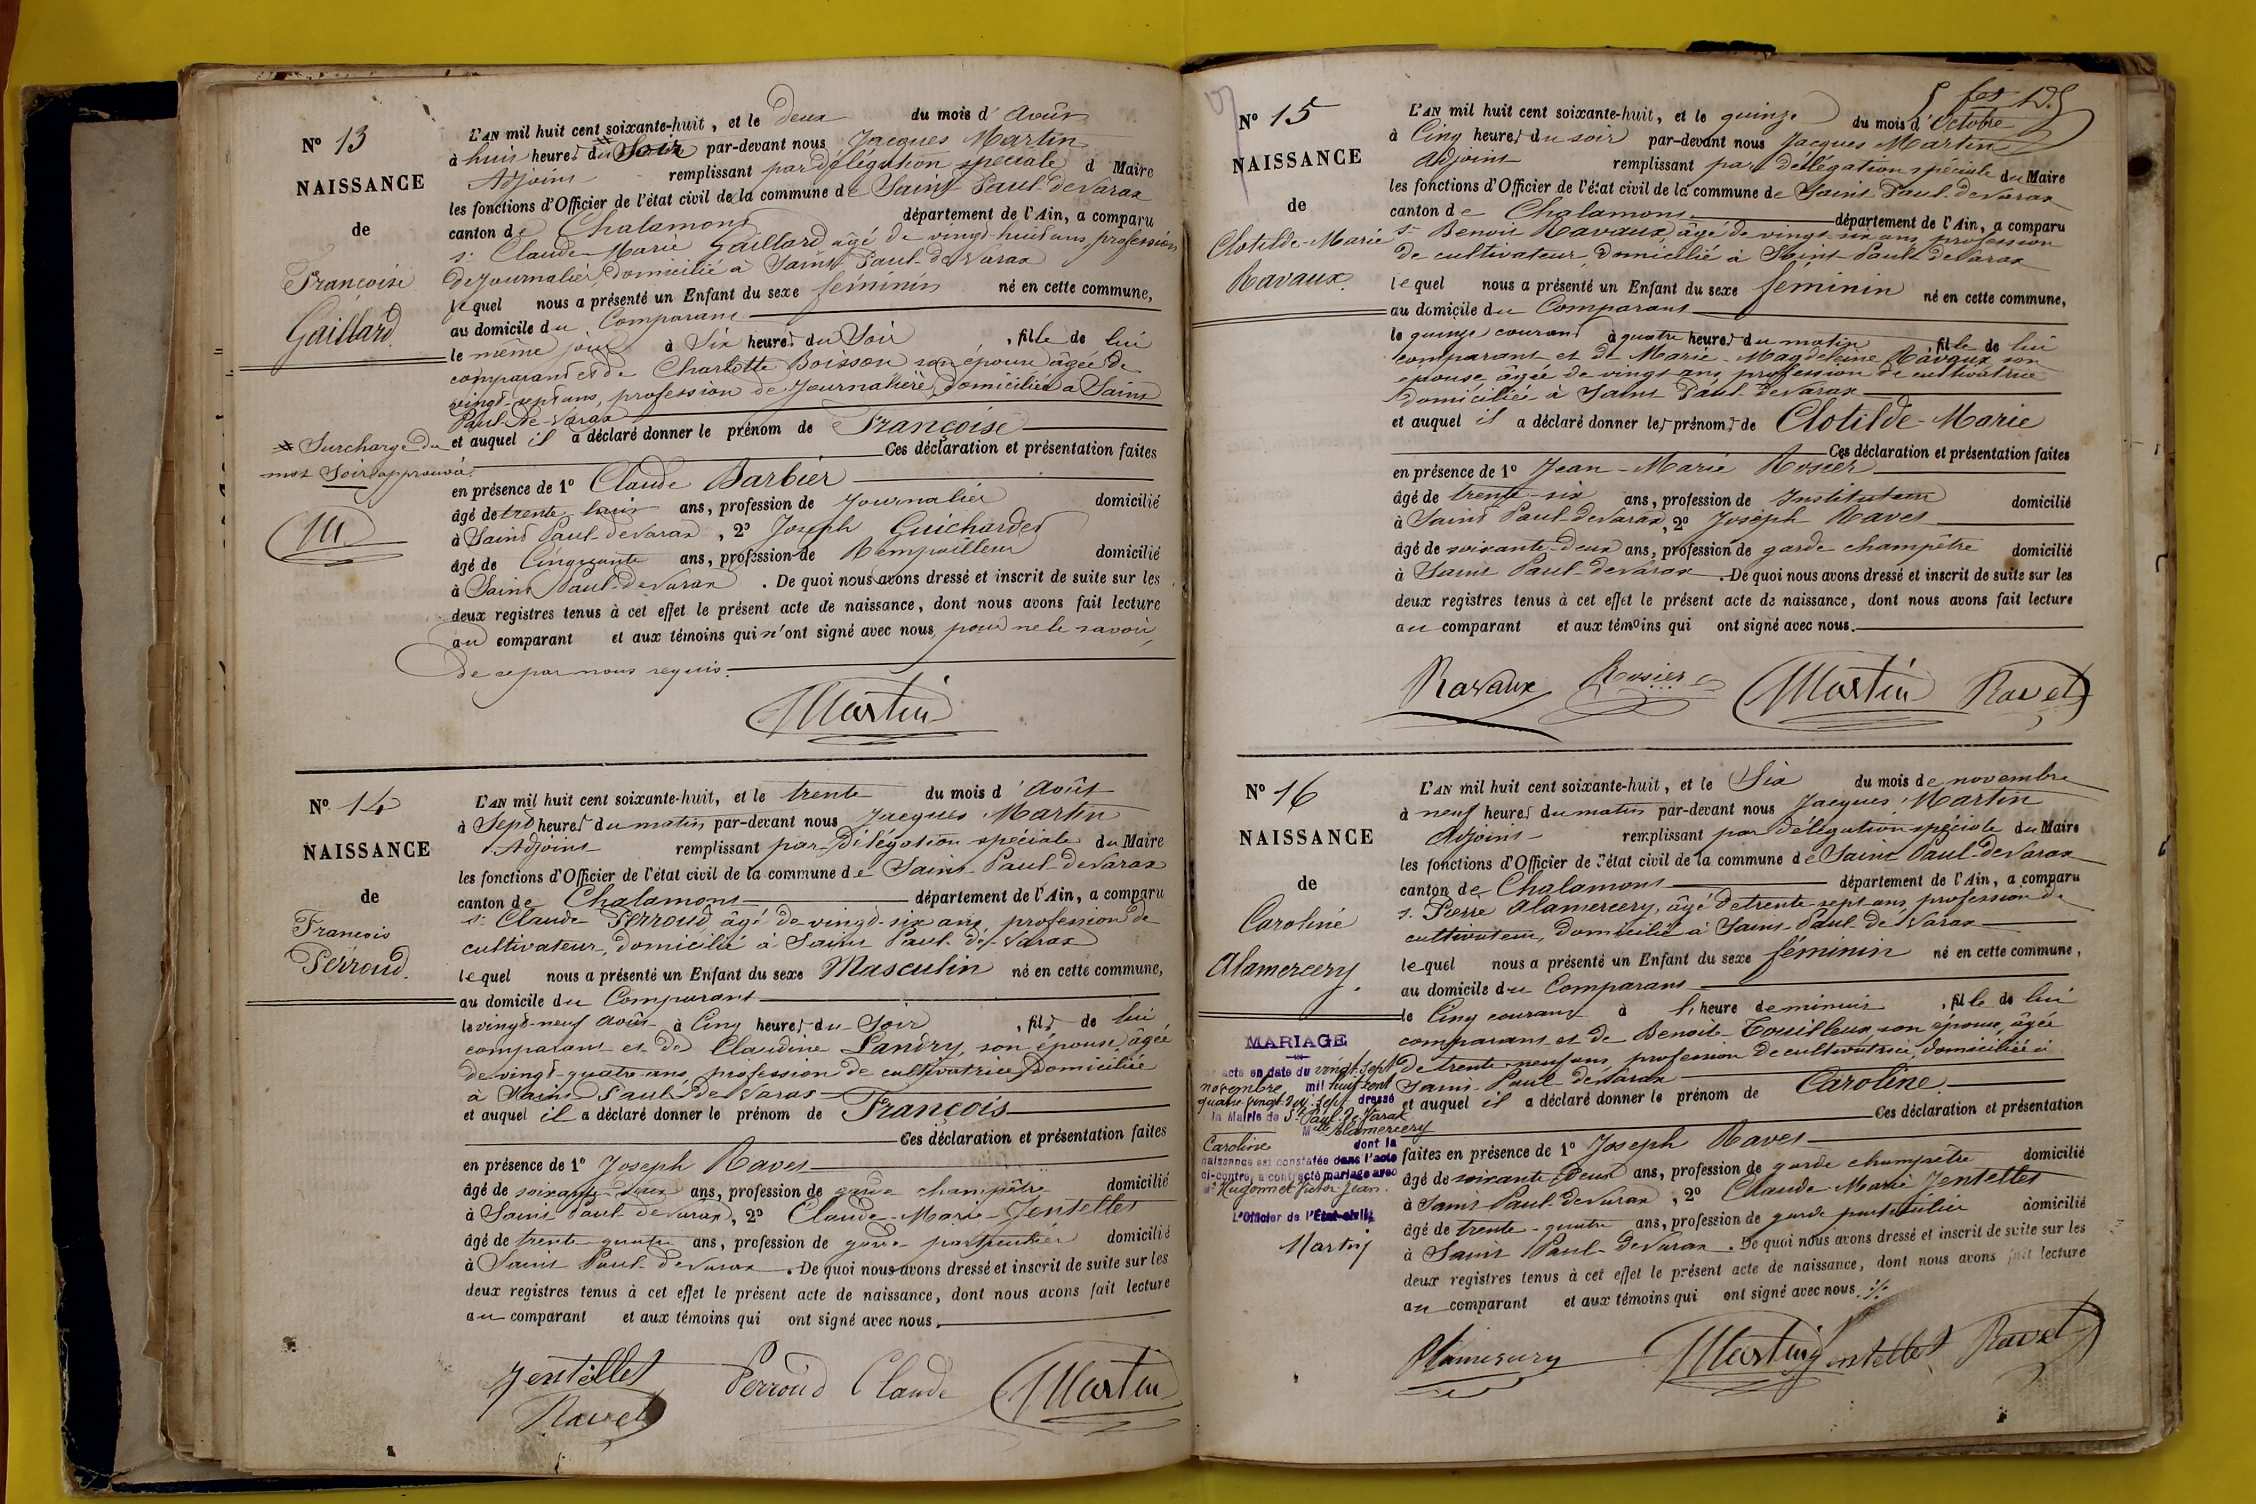 N° 13
NAISSANCE
de
Françoise
Gaillard.
L'AN mil huit cent soixante-huit, et le deux du mois d'Août
à huit heures du Soir par-devant nous Jacques Martin
Adjoint remplissant par délégation spéciale d Maire
les fonctions d'Officier de l'état civil de la commune de Saint Paul-de Varax
canton de Chalamont département de l'Ain, a comparu
sr Claude-Marie Gaillard âgé de vingt-huit ans, profession
de journalier, domicilié à Saint Paul-de Varax
lequel nous a présenté un Enfant du sexe féminin né en cette commune,
au domicile du Comparant
le même jour à Six heures du Soir, fille de lui
comparant et de Charlotte Boisson son épouse âgée de
vingt-sept ans, profession de Journalière, domiciliée à Saint
Paul-de-Varax
et auquel il a déclaré donner le prénom de Françoise
Ces déclaration et présentation faites
Surcharge du
mot Soir approuvé.
M
en présence de 1° Claude Barbier
âgé de trente huit ans, profession de Journalier domicilié
à Saint Paul-de Varax, 2° Joseph Guichardet
âgé de Cinquante ans, profession de Rempailleur domicilié
à Saint Paul-de Varax. De quoi nous avons dressé et inscrit de suite sur les
deux registres tenus à cet effet le présent acte de naissance, dont nous avons fait lecture
au comparant et aux témoins qui n'ont signé avec nous pour ne le savoir,
de ce par nous requis.
Martin
N° 14
NAISSANCE
de
François
Perroud.
L'AN mil huit cent soixante-huit, et le trente du mois d'Août
à Sept heures du matin par-devant nous Jacques Martin
Adjoint remplissant par Délégation spéciale du Maire
les fonctions d'Officier de l'état civil de la commune de Saint Paul-de Varax
canton de Chalamont département de l'Ain, a comparu
sr Claude Perroud âgé de vingt-six ans, profession de
cultivateur, domicilié à Saint Paul-de-Varax
lequel nous a présenté un Enfant du sexe Masculin né en cette commune,
au domicile du Comparant
le vingt-neuf août à Cinq heures du Soir, fils de lui
comparant et de Claudine Landry, son épouse âgée
de vingt-quatre ans, profession de cultivatrice, domiciliée
à Saint Paul-de Varax
et auquel il a déclaré donner le prénom de François
Ces déclaration et présentation faites
en présence de 1° Joseph Ravet
âgé de soixante-deux ans, profession de garde champêtre domicilié
à Saint Paul-de Varax, 2° Claude-Marie Jentellet
âgé de trente-quatre ans, profession de garde particulier domicilié
à Saint Paul-de Varax. De quoi nous avons dressé et inscrit de suite sur les
deux registres tenus à cet effet le présent acte de naissance, dont nous avons fait lecture
au comparant et aux témoins qui ont signé avec nous.
Jentellet Perroud Claude Martin
Ravet
N° 15
NAISSANCE
de
Clotilde-Marie
Ravaux.
L'AN mil huit cent soixante-huit, et le quinze du mois d'Octobre
à Cinq heures du soir par-devant nous Jacques Martin
Adjoint remplissant par délégation spéciale du Maire
les fonctions d'Officier de l'état civil de la commune de Saint Paul-de Varax
canton de Chalamont département de l'Ain, a comparu
sr Benoit Ravaux, âgé de vingt-six ans, profession
de cultivateur, domicilié à Saint Paul-de Varax
lequel nous a présenté un Enfant du sexe féminin né en cette commune,
au domicile du Comparant
le quinze courant à quatre heures du matin, fille de lui
comparant et de Marie-Magdeleine Ravaux son
épouse, âgée de vingt ans, profession de cultivatrice
domiciliée à Saint Paul-de Varax
et auquel il a déclaré donner les prénoms de Clotilde-Marie
Ces déclaration et présentation faites
en présence de 1° Jean-Marie Rosier
âgé de trente-six ans, profession de Instituteur domicilié
à Saint Paul-de Varax, 2° Joseph Ravet
âgé de soixante-deux ans, profession de garde champêtre domicilié
à Saint Paul-de Varax. De quoi nous avons dressé et inscrit de suite sur les
deux registres tenus à cet effet le présent acte de naissance, dont nous avons fait lecture
au comparant et aux témoins qui ont signé avec nous.
Ravaux Rosier Martin Ravet
N° 16
NAISSANCE
de
Caroline
Alamercery.
L'AN mil huit cent soixante-huit, et le Six du mois de novembre
à neuf heures du matin par-devant nous Jacques Martin
Adjoint remplissant par Délégation spéciale du Maire
les fonctions d'Officier de l'état civil de la commune de Saint Paul-de Varax
canton de Chalamont département de l'Ain, a comparu
sr Pierre Alamercery, âgé de trente sept ans, profession de
cultivateur, domicilié à Saint-Paul-de Varax
lequel nous a présenté un Enfant du sexe féminin né en cette commune,
au domicile du Comparant
le Cinq courant à l'heure de minuit, fille de lui
comparant et de Benoite Touilleux son épouse, âgée
de trente-neuf ans, profession de cultivatrice, domiciliée à
Saint-Paul-de Varax
et auquel il a déclaré donner le prénom de Caroline
Ces déclaration et présentation
faites en présence de 1° Joseph Ravet
âgé de soixante-deux ans, profession de garde champêtre domicilié
à Saint Paul-de Varax, 2° Claude Marie Jentellet
âgé de trente-quatre ans, profession de garde particulier domicilié
à Saint Paul-de Varax. De quoi nous avons dressé et inscrit de suite sur les
deux registres tenus à cet effet le présent acte de naissance, dont nous avons fait lecture
au comparant et aux témoins qui ont signé avec nous
Alamercery Martin Jentellet Ravet
MARIAGE
acte en date du vingt-sept
novembre mil huit cent
quatre vingt dix sept dressé
la Mairie de St Paul de Varax
Mlle Alamercery
Caroline dont la
naissance est constatée dans l'acte
ci-contre, a contracté mariage avec
Mr Hugonnet Victor Jean.
L'Officier de l'État-civil,
Martin